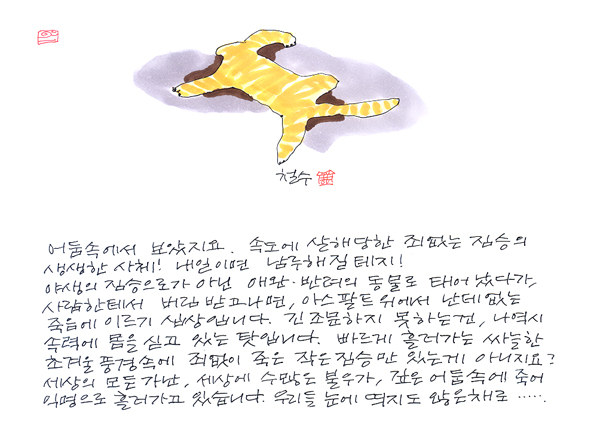 철수
어둠속에서 보았지요. 속도에 살해당한 죄없는 짐승의
생생한 사체! 내일이면 남루해질 테지!
야생의 짐승으로가 아닌 애완·반려의 동물로 태어났다가,
사람한테서 버림 받고나면, 아스팔트 위에서 난데없는
죽음에 이르기 십상입니다. 긴 조문하지 못하는건, 나역시
속력에 몸을 싣고 있는 탓입니다. 빠르게 흘러가는 싸늘한
초겨울 풍경속에 죄없이 죽은 작은짐승만 있는게 아니지요?
세상의 모든 가난, 세상에 수많은 불우가, 깊은 어둠속에 죽어
익명으로 흘러가고 있습니다. 우리들 눈에 띄지도 않은채로 …..